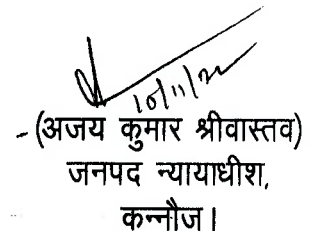 10/11/22
(अजय कुमार श्रीवास्तव)
जनपद न्यायाधीश,
कन्नौज।